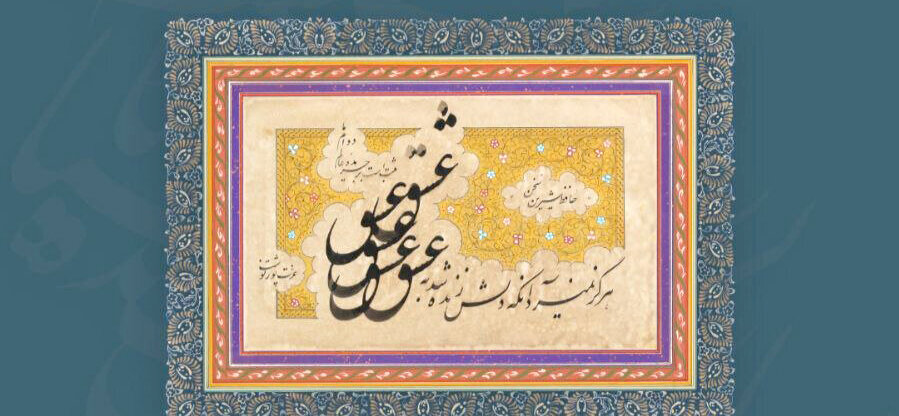 هرگز نمیرد آنکه دلش زنده شد به عشق
عشق
عشق
عشق
عشق
ثبت است بر جریده عالم
دوام ما
حافظ شیرین سخن